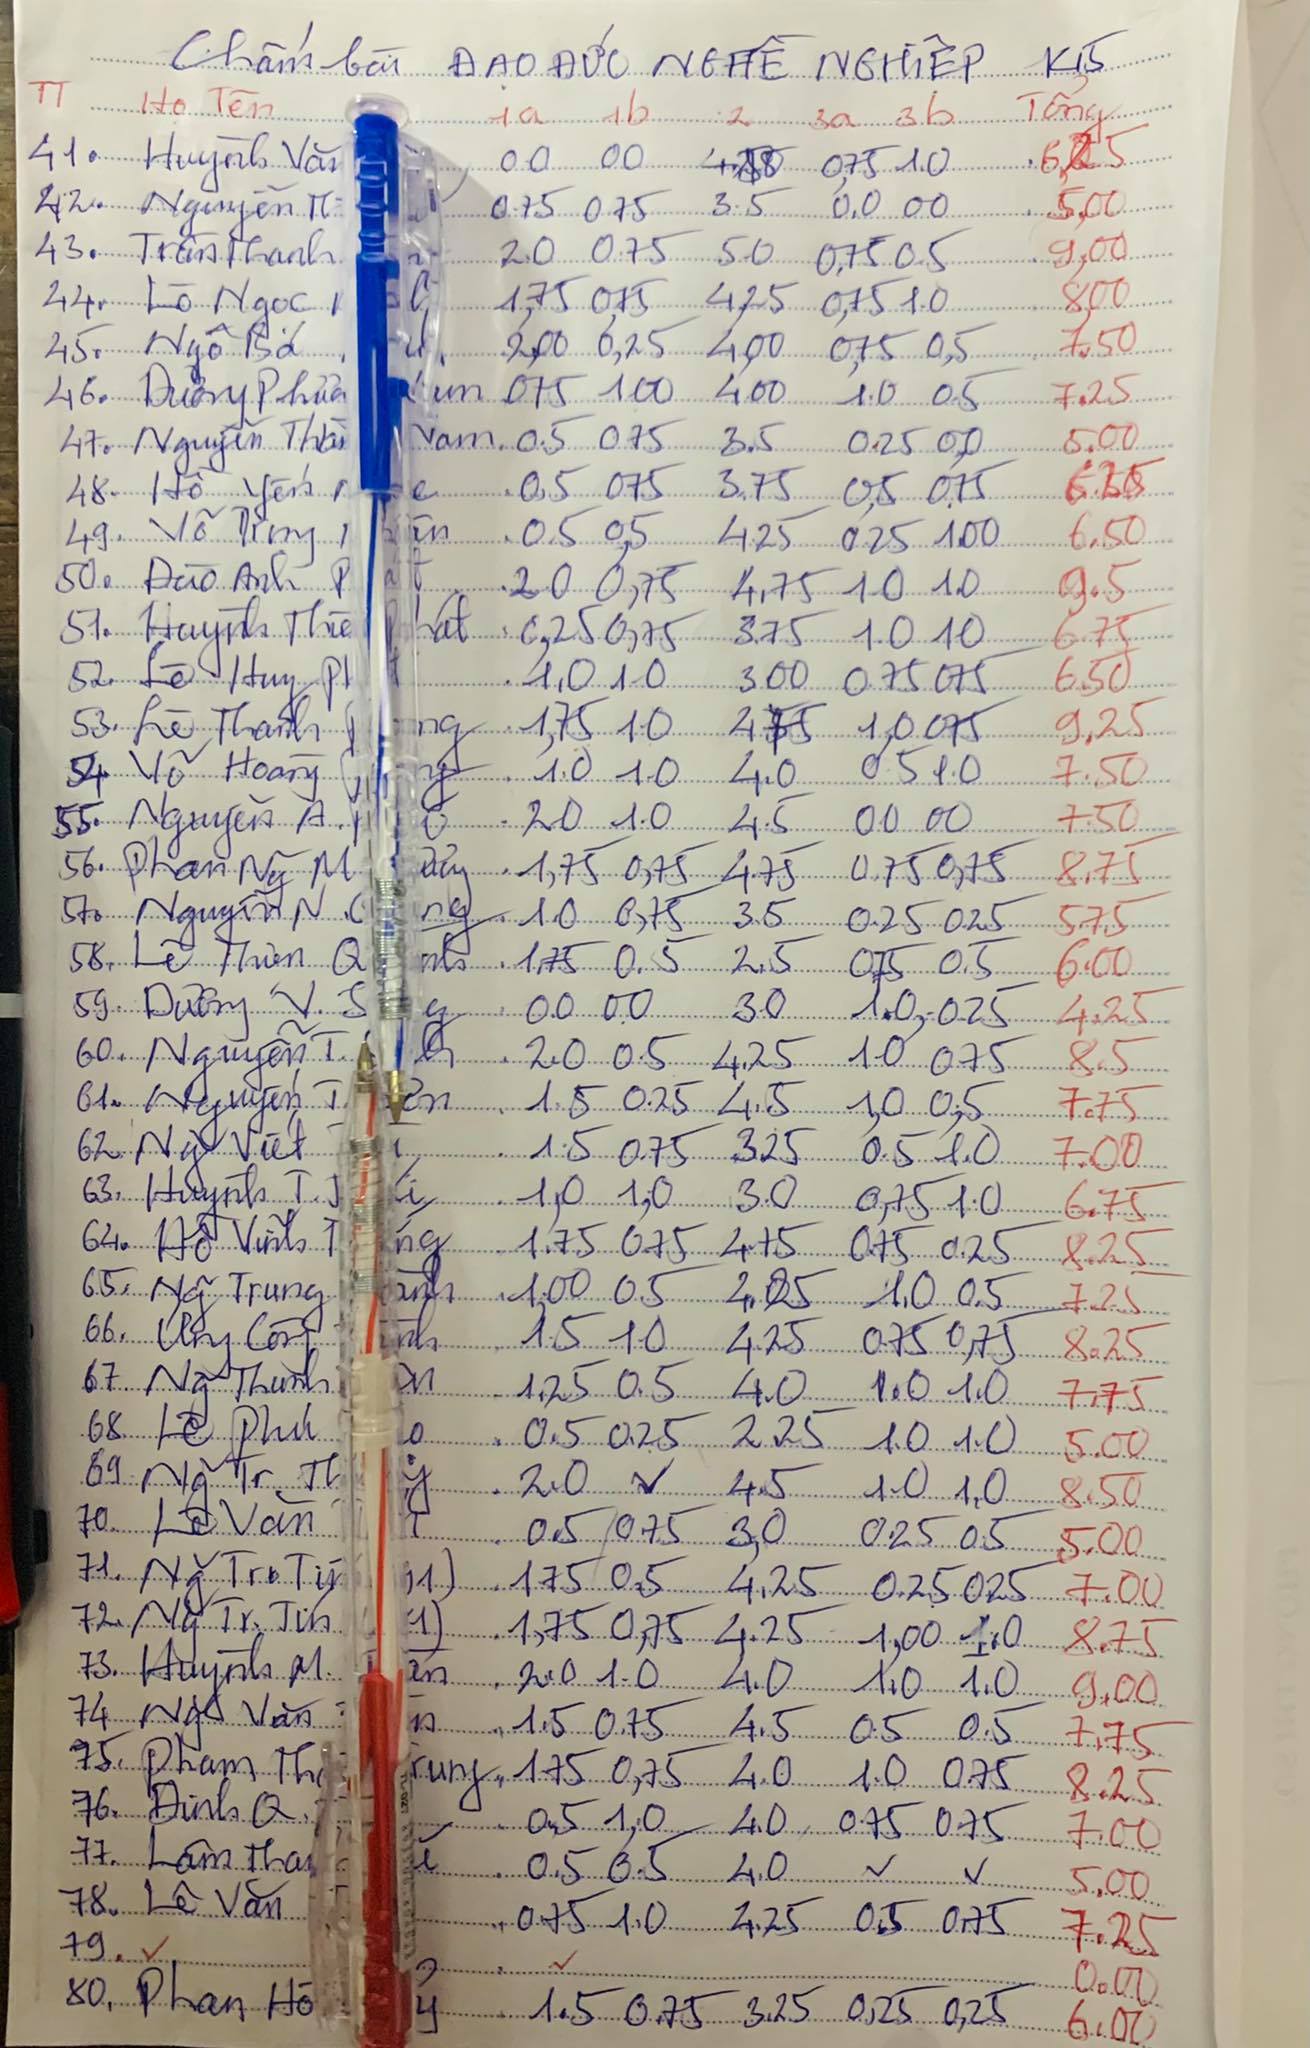 Chấm bài ĐẠO ĐỨC NGHỀ NGHIỆP K15
TT Họ Tên 1a 1b 2 3a 3b Tổng
41. Huỳnh Văn 0.0 0.0 0,75 1.0
42. Nguyễn 0.75 0.75 3.5 0.0 0.0 5,00
43. Trần Thanh 2.0 0.75 5.0 0,75 0.5 9,00
44. Lê Ngọc 1,75 0,75 4,25 0,75 1.0 8,00
45. Ngô Bá 2,00 0,25 4,00 0,75 0,5 7.50
46. Dương 0.75 1.00 4.00 1.0 0.5 7.25
47. Nguyễn Nam 0.5 0.75 3.5 0.25 0,0 5.00
48. Hồ Yến 0.5 0.75 3.75 0,5 0,75
49. Võ 0.5 0,5 4.25 0.25 1.00 6.50
50. Đào Anh 2.0 0,75 4,75 1.0 1.0 9.5
51. Huỳnh 0,25 0,75 3.75 1.0 1.0 6.75
52. Lê Huy 1,0 1.0 3.00 0.75 0.75 6.50
53. Lê Thanh 1,75 1.0 1,0 0.75 9,25
54. Võ Hoàng 1.0 1.0 4.0 0.5 1.0 7.50
55. Nguyễn A. 2.0 1.0 4.5 0.0 0.0 7.50
56. Phan Ng M 1,75 0,75 4.75 0.75 0,75 8.75
57. Nguyễn N. 1.0 0,75 3.5 0.25 0.25 5.75
58. Lê Thiên 1.75 0.5 2.5 0,75 0.5 6.00
59. Dương V. 0.0 0.0 3.0 1.0 0.25 4.25
60. Nguyễn T. 2.0 0.5 4.25 1.0 0.75 8.5
61. Nguyễn T. 1.5 0.25 4.5 1,0 0,5 7.75
62. Ng Viết 1.5 0.75 3.25 0.5 1.0 7.00
63. Huỳnh T. 1,0 1,0 3.0 0,75 1.0 6.75
64. Hồ Vĩnh 1.75 0.75 4.75 0.75 0.25 8.25
65. Ng Trung 1,00 0.5 1.0 0.5 7.25
66. Công 1.5 1.0 4.25 0.75 0,75 8.25
67. Ng 1.25 0.5 4.0 1.0 1.0 7.75
68. Lê 0.5 0.25 2.25 1.0 1.0 5.00
69. Ng Tr. 2.0 ✓ 4.5 1.0 1,0 8.50
70. Lê Văn 0.5 0.75 3,0 0.25 0.5 5.00
71. Ng Tr. 1.75 0.5 4.25 0.25 0.25 7.00
72. Ng Tr. 1,75 0,75 4.25 1,00 1.0 8.75
73. Huỳnh M. 2.0 1.0 4.0 1.0 1.0 9,00
74. Văn 1.5 0.75 4.5 0.5 0.5 7.75
75. Phạm Trung 1.75 0,75 4.0 1.0 0.75 8.25
76. Đinh Q. 0.5 1,0 4.0 0.75 0.75 7.00
77. Lâm 0.5 0.5 4.0 ✓ ✓ 5.00
78. Lê Văn 0.75 1.0 4.25 0.5 0.75 7.25
79. ✓ ✓ 0.00
80. Phan Hồ 1.5 0.75 3.25 0,25 0,25 6.00